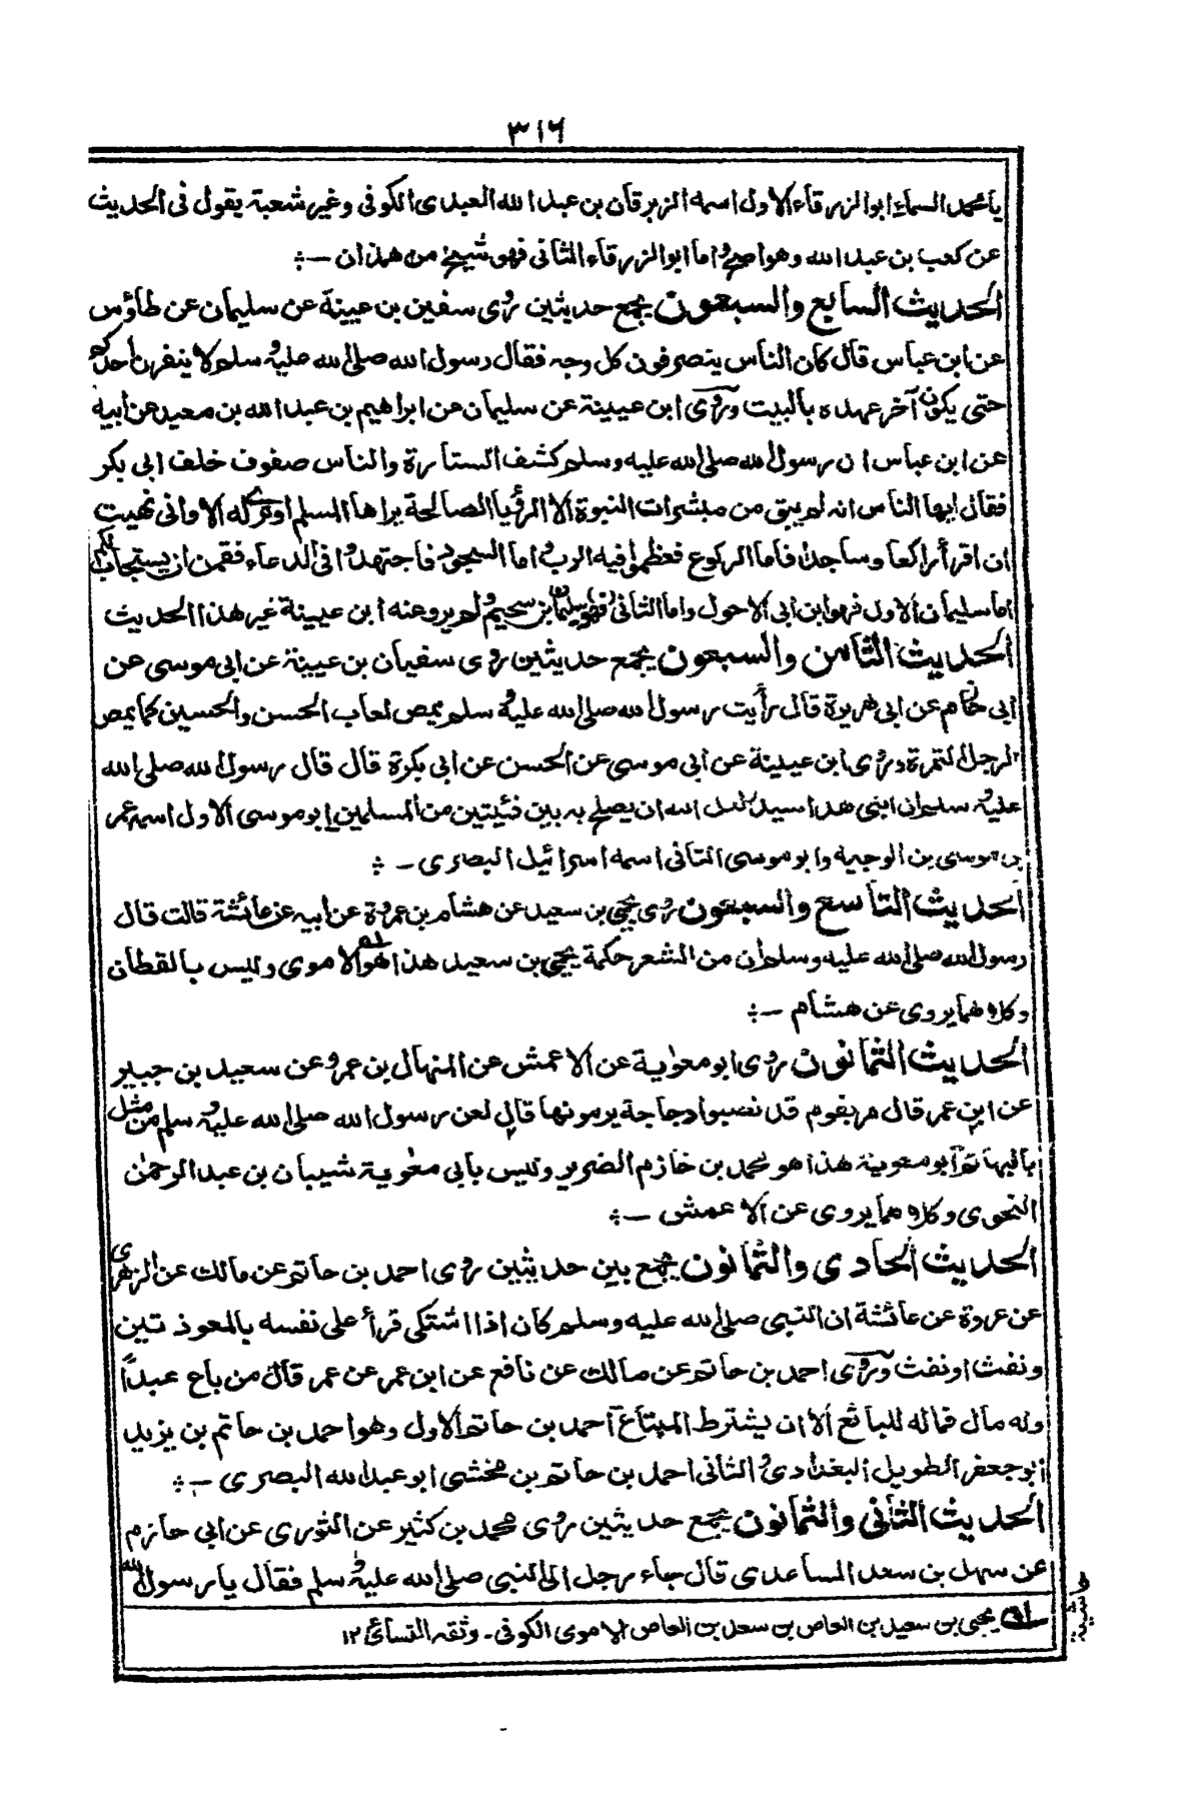 ٣١٦
يا محمد السماء ابو الزرقاء الاول اسمه الزبرقان بن عبد الله العبدى الكوفى وغير شعبة يقول فى الحديث
عن كعب بن عبد الله وهو اصح واما ابو الزرقاء الثانى فهو شيخ من همذان ـ
الحديث السابع والسبعون يجمع حديثين روى سفين بن عيينة عن سليمان عن طاؤس
عن ابن عباس قال كان الناس ينصرفون كل وجه فقال رسول الله صلى الله عليه وسلم لا ينفرن احدكم
حتى يكون آخر عهده بالبيت وروى ابن عيينة عن سليمان عن ابراهيم بن عبد الله بن معبد عن ابيه
عن ابن عباس ان رسول الله صلى الله عليه وسلم كشف الستارة والناس صفوف خلف ابى بكر
فقال ايها الناس انه لم يبق من مبشرات النبوة الا الرؤيا الصالحة يراها المسلم او ترى له الا وانى نهيت
ان اقرأ راكعا وساجدا فاما الركوع فعظموا فيه الرب واما السجود فاجتهدوا فى الدعاء فقمن ان يستجاب لكم
اما سليمان الاول فهو ابن ابى الاحول واما الثانى فهو سليمان بن سحيم ولم يرو عنه ابن عيينة غير هذا الحديث
الحديث الثامن والسبعون يجمع حديثين روى سفيان بن عيينة عن ابى موسى عن
ابى عن ابى هريرة قال رأيت رسول الله صلى الله عليه وسلم يمص لعاب الحسن والحسين كما يمص
الرجل التمرة وروى ابن عيينة عن ابى موسى عن الحسن عن ابى بكرة قال قال رسول الله صلى الله
عليه وسلم ان ابنى هذا سيد لعل الله ان يصلح به بين فئيتين من المسلمين ابو موسى الاول اسمه عمر
بن موسى بن الوجيه وابو موسى الثانى اسمه اسرائيل البصرى ـ
الحديث التاسع والسبعون روى يحيى بن سعيد عن هشام بن عروة عن ابيه عن عائشة قالت قال
رسول الله صلى الله عليه وسلم ان من الشعر حكمة يحيى بن سعيد هذا هو له الاموى وليس بالقطان
وكلاهما يروى عن هشام ـ
الحديث الثمانون روى ابو معوية عن الاعمش عن المنهال بن عمرو عن سعيد بن جبير
عن ابن عمر قال مر بقوم قد نصبوا دجاجة يرمونها قال لعن رسول الله صلى الله عليه وسلم من مثل
بالبهائم ابو معوية هذا هو محمد بن خازم الضرير وليس بابى معوية شيبان بن عبد الرحمن
النحوى وكلاهما يروى عن الاعمش ـ
الحديث الحادى والثمانون يجمع بين حديثين روى احمد بن حاتم عن مالك عن الزهرى
عن عروة عن عائشة ان النبى صلى الله عليه وسلم كان اذا اشتكى قرأ على نفسه بالمعوذتين
ونفث او نفث وروى احمد بن حاتم عن مالك عن نافع عن ابن عمر عن عمر قال من باع عبدًا
وله مال فماله للبائع الا ان يشترط المبتاع احمد بن حاتم الاول وهو احمد بن حاتم بن يزيد
ابو جعفر الطويل البغدادى والثانى احمد بن حاتم بن مخشى ابو عبد الله البصرى ـ
الحديث الثانى والثمانون يجمع حديثين روى محمد بن كثير عن الثورى عن ابى حازم
عن سهل بن سعد الساعدى قال جاء رجل الى النبى صلى الله عليه وسلم فقال يا رسول الله
له يحيى بن سعيد بن العاص بن سعد بن العاص الاموى الكوفى ـ وثقه النسائى ١٢